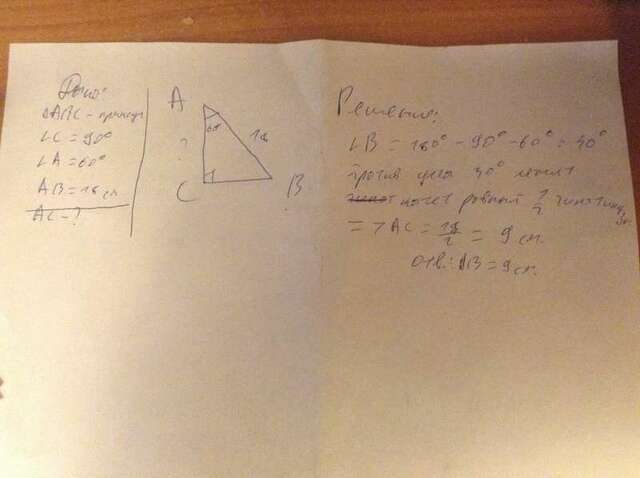 Дано:
△ABC - прямоуг
∠C = 90°
∠A = 60°
AB = 18 см
AC - ?
A
60°
18
?
C
B
Решение:
∠B = 180° - 90° - 60° = 30°
против угла 30° лежит
катет равный 1/2 гипотенузы
=> AC = 18/2 = 9 см.
отв: AB = 9 см.